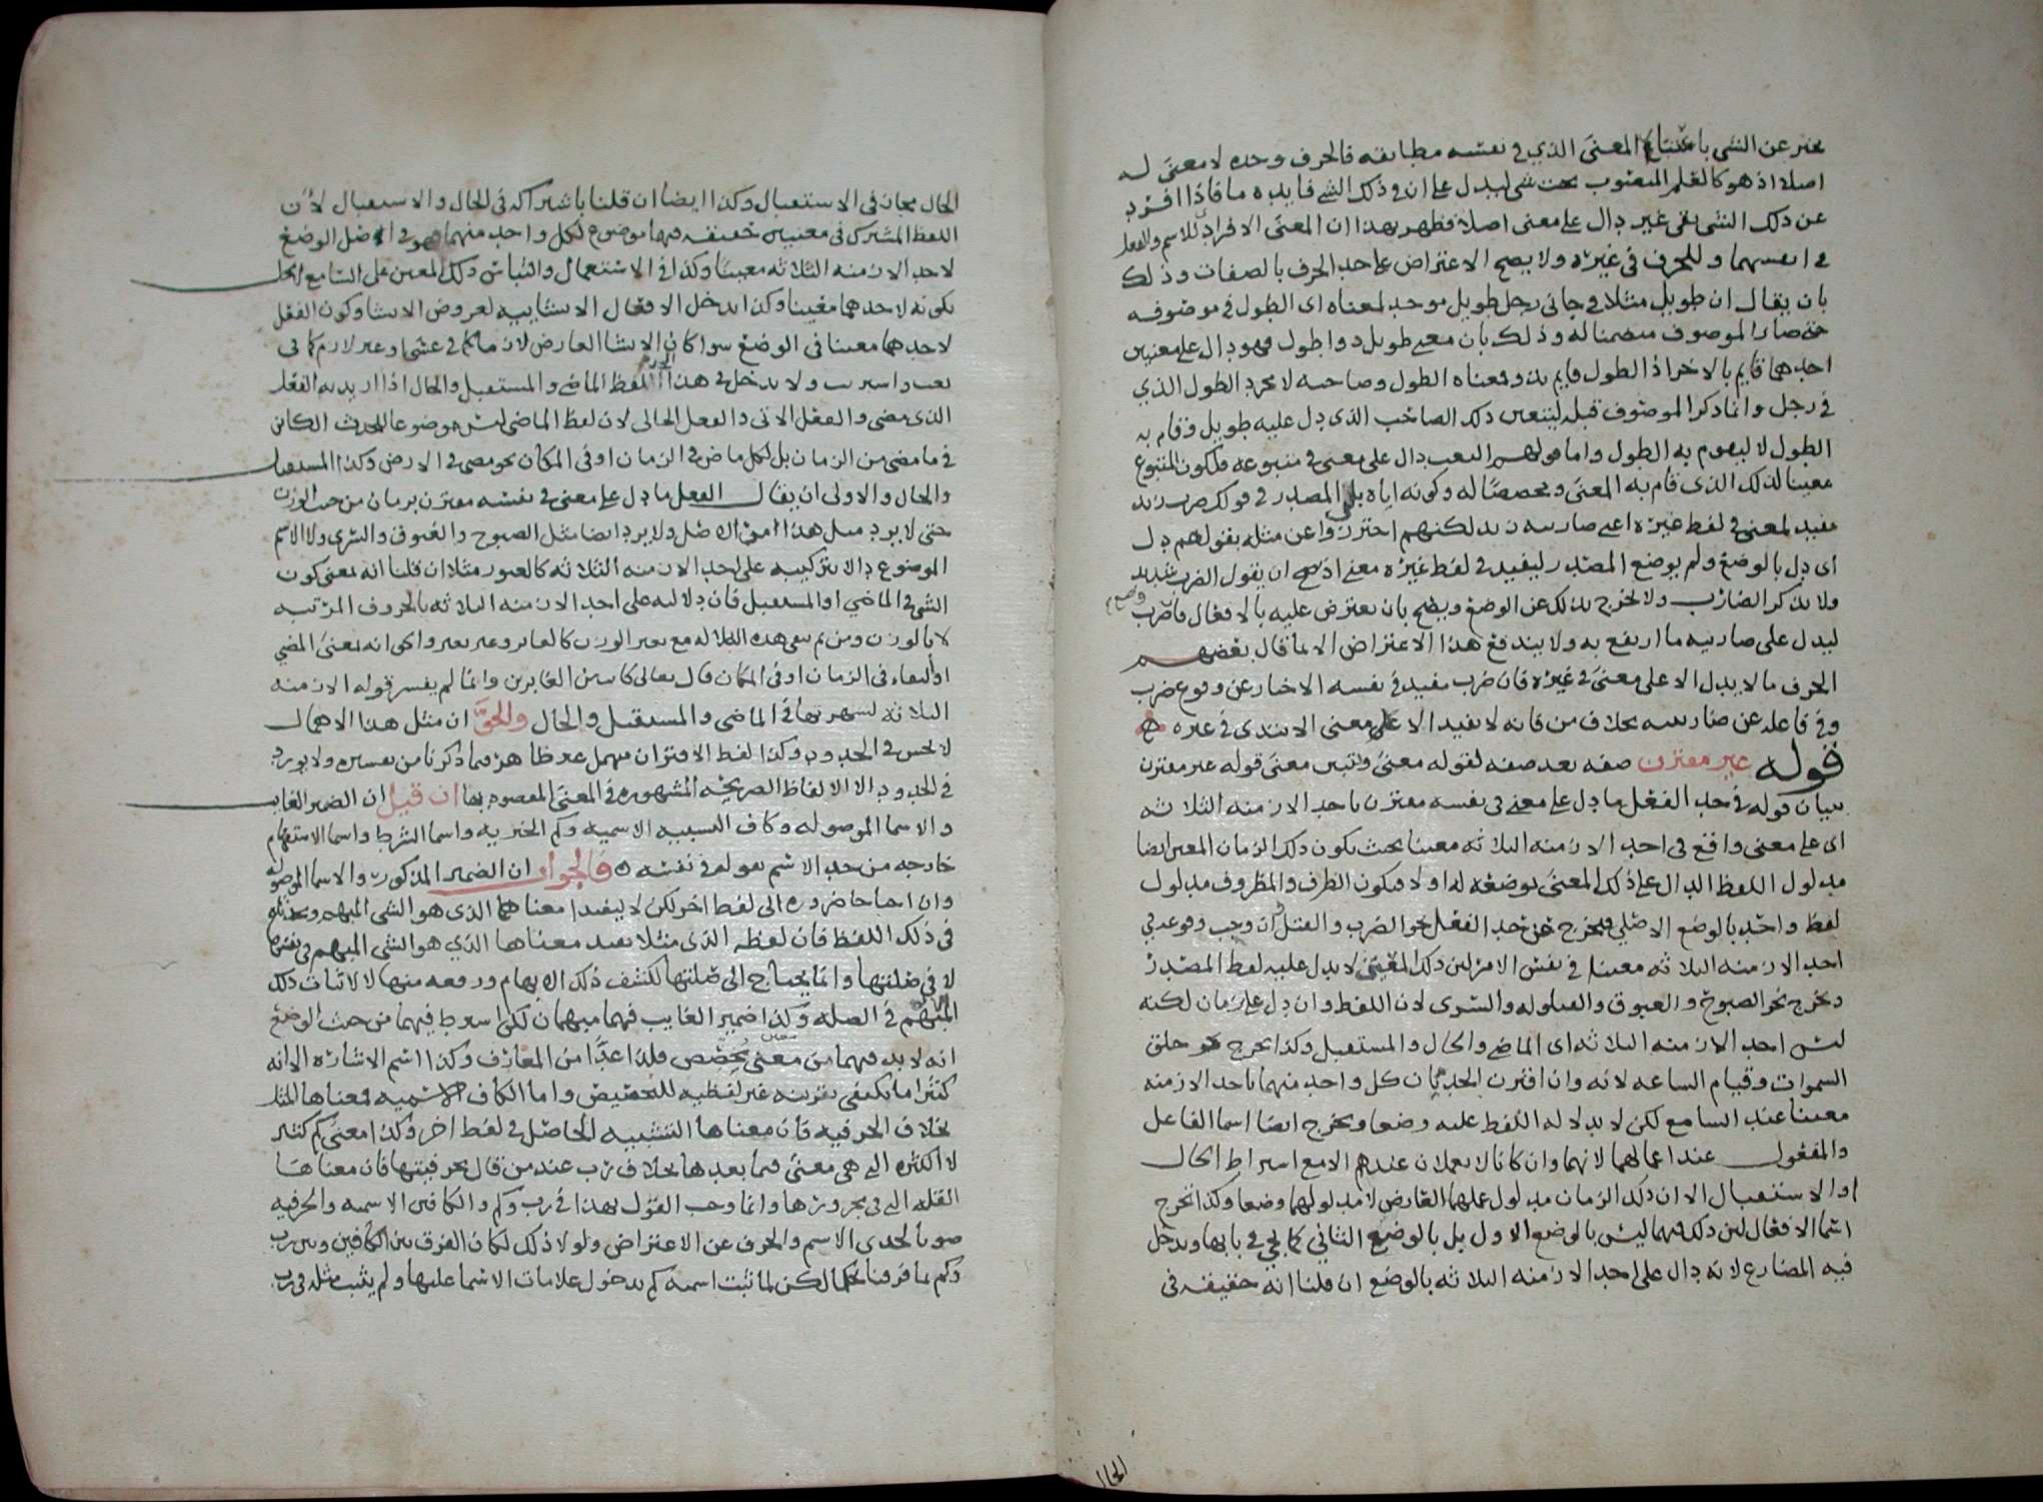 يخبر عن الشي باعتبار المعنى الذي في نفسه مطابقه فالحرف وحده لا معنى له
اصلا اذ هو كالعلم المنصوب بجنب شي ليدل على ان في ذلك الشي فايده ما فاذا افرد
عن ذلك الشي بقي غير دال على معنى اصلا فظهر بهذا ان المعنى الافرادي للاسم والفعل
في انفسهما وللحرف في غيره ولا يصح الاعتراض على حد الحرف بالصفات وذلك
بان يقال ان طويل مثلا في جاني رجل طويل موجد لمعناه اي الطول في موصوفه
حتى صار الموصوف متضمنا له وذلك بان معنى طويل ذو طول فهو دال على معنيين
احدهما قايم بالاخر اذ الطول قايم بذو ومعناه الطول وصاحبه لا مجرد الطول الذي
في رجل وانما ذكر الموصوف قبله ليتعين ذلك الصاحب الذي دل عليه طويل وقام به
الطول لا ليقوم به الطول واما قولهم النعت دال على معنى في متبوعه فلكون المتبوع
معينا لذلك الذي قام به المعنى ومخصصا له وكونه اياه بلى المصدر في قولك ضرب زيد
مفيد لمعنى في لفظ غيره اعني ضاربيه زيد لكنهم احترزوا عن مثله بقولهم دل
اي دل بالوضع ولم يوضع المصدر ليفيد في لفظ غيره معنى اذ يصح ان يقول الضرب شديد
ولا يذكر الضارب ولا يخرج بذلك عن الوضع ويصح بان يعترض عليه بالافعال فضرب وضع
ليدل على ضاربيه ما ارتفع به ولا يندفع هذا الاعتراض الا بما قال بعضهم
الحرف ما لا يدل الا على معنى في غيره فان ضرب مفيد في نفسه الاخبار عن وقوع ضرب
وفي فاعله عن ضاربيه بخلاف من فانه لا يفيد الا على معنى الابتدى في غيره
قوله غير مقترن صفه بعد صفه لقوله معنى وتبين معنى قوله غير مقترن
ببيان قوله في حد الفعل ما دل على معنى في نفسه مقترن باحد الازمنه الثلاثه
اي على معنى واقع في احد الازمنه الثلاثه معينا بحيث يكون ذلك الزمان المعين ايضا
مدلول اللفظ الدال على ذلك المعنى بوضعه له اولا فيكون الظرف والمظروف مدلول
لفظ واحد بالوضع الاصلي فيخرج عن حد الفعل نحو الضرب والقتل وان وجب وقوعه في
احد الازمنه الثلاثه معينا في نفس الامر لان ذلك المعين لا يدل عليه لفظ المصدر
ويخرج نحو الصبوح والغبوق والقيلوله والسرى لان اللفظ وان دل على زمان لكنه
ليس احد الازمنه الثلاثه اي الماضي والحال والمستقبل وكذا يخرج نحو خلق
السموات وقيام الساعه لانه وان اقترن الحدثان كل واحد منهما باحد الازمنه
معينا عند السامع لكن لا بدلاله اللفظ عليه وضعا ويخرج ايضا اسما الفاعل
والمفعول عند اعمالهما لانهما وان كانا لا يعملان عندهم الا مع اشتراط الحال
او الاستقبال الا ان ذلك الزمان مدلول عملهما العارض لا مدلولهما وضعا وكذا تخرج
اسما الافعال لان ذلك فيهما ليس بالوضع الاول بل بالوضع الثاني كما يجي في بابها ويدخل
فيه المضارع لانه دال على احد الازمنه الثلاثه بالوضع ان قلنا انه حقيقه في
الحال
الحال مجاز في الاستقبال وكذا ايضا ان قلنا باشتراكه في الحال والاستقبال لان
اللفظ المشترك في معنيين حقيقه فيهما موضوع لكل واحد منهما فهو في اصل الوضع
لاحد الازمنه الثلاثه معينا وكذا في الاستعمال والتباس ذلك المعين على السامع لا يخل
بكونه لاحدهما معينا وكذا يدخل الافعال الانشاييه لعروض الانشا وكون الفعل
لاحدهما معينا في الوضع سوا كان الانشا العارض لازما كما في عسى او غير لازم كما في
بعت واشتريت ولا يدخل في هذا الحد لفظ الماضي والمستقبل والحال اذا اريد به الفعل
الذي مضى والفعل الاتي والفعل الحالي لان لفظ الماضي ليس موضوعا للحدث الكائن
في ما مضى من الزمان بل لكل ماض في الزمان او في المكان نحو مضى في الارض وكذا المستقبل
والحال والاولى ان يقال الفعل ما دل على معنى في نفسه مقترن بزمان من حيث الوزن
حتى لا يرد مثل هذا من الاصل ولا يرد ايضا مثل الصبوح والغبوق والسرى ولا الاسم
الموضوع دالا بتركيبه على احد الازمنه الثلاثه كالغبور مثلا ان قلنا انه بمعنى كون
الشي في الماضي او المستقبل فان دلالته على احد الازمنه الثلاثه بالحروف المرتبه
لا بالوزن ومن ثم بقي هذه الدلاله مع تغير الوزن كالغابر وغبر يغبر والحق انه بمعنى المضي
او البقاء في الزمان او في المكان قال تعالى كانت من الغابرين وانما لم يفسر قوله الازمنه
الثلاثه لشهرتها في الماضي والمستقبل والحال والحق ان مثل هذا الاهمال
لا يحسن في الحدود وكذا لفظ الاقتران مهمل غير ظاهر فيما ذكرنا من تفسيره ولا يورد
في الحدود الا الالفاظ الصريحه المشهوره في المعنى المقصود بها ان قيل ان الضمير الغايب
والاسما الموصوله وكاف التشبيه الاسميه وكم الخبريه واسما الشرط واسما الاستفهام
خارجه من حد الاسم بقوله في نفسه فالجواب ان الضمير المذكور والاسما الموصوله
وان احتاجا ضروره الى لفظ اخر لكن لا ليفيدا معناهما الذي هو الشي المبهم ويحدثانه
في ذلك اللفظ فان لفظه الذي مثلا تفيد معناها الذي هو الشي المبهم في نفسها
لا في صلتها وانما يحتاج الى صلتها لكشف ذلك الابهام ورفعه منها لا لاثبات ذلك
المبهم في الصله وكذا ضمير الغايب فهما مبهمان لكن اشترط فيهما من حيث الوضع
انه لا بد فيهما من معنى يخصص فلذا عدا من المعارف وكذا اسم الاشاره الا انه
كثيرا ما يكتفى بقرينه غير لفظيه للتخصيص واما الكاف الاسميه فمعناها المثل
بخلاف الحرفيه فان معناها التشبيه الحاصل في لفظ اخر وكذا معنى كم كثير
لا الكثره التي هي معنى فيما بعدها بخلاف رب عند من قال بحرفيتها فان معناها
القله التي في مجرورها وانما وجب القول بهذا في رب وكم والكافين الاسميه والحرفيه
صونا لحدي الاسم والحرف عن الاعتراض ولولا ذلك لكان الفرق بين الكافين وبين رب
وكم بما فرقنا تحكما لكن لما ثبت اسميه كم بدخول علامات الاسما عليها ولم يثبت مثله في رب